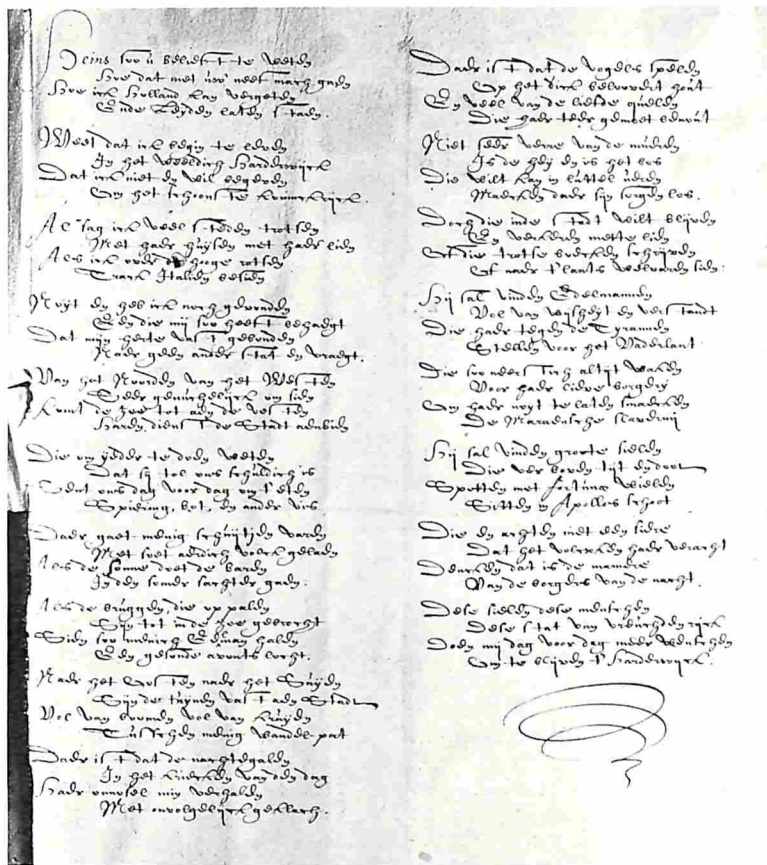 Heins soo u belieft te weten
Hoe dat met uw neef mach gaen
Hoe ick Holland kan vergeten
Ende Leyden laten staen.
Weet dat ick begin te leven
In het weeldich Harderwijck
Dat ick niet en wil begeven
Om het schoonste Coninckrijck.
Al sag ick veel steden trotsen
Met haer huysen met haer lien
Als ick over de hooge rotsen
Track Italien besien
Noyt en heb ick noch gevonden
Een die mij soo heeft behaegt
Dat mijn herte vast gebonden
Naer geen ander stat en vraegt.
Van het Noorden van het Westen
Seer genuchelijck om sien
Komt de zee tot aen de vesten
Haren dienst de Stadt aenbien
Die om yeder te doen weten
Dat sij tol ons schuldich is
Sent ons dag voor dag om t'eten
Spiering, bot, en ander vis.
Daer gaet menig schuijtjen varen
Met soet aerdich volck gelaen
Als de sonne doet de baren
In den somer sachter gaen.
Als de bruggen die op palen
Sijn tot inde zee gebrocht
Sien soo menich Edman halen
Een gesonde avonts locht.
Naer het Oosten naer het Suyen
Sijn de tuynen vast aen Stadt
Vol van boomen vol van kruyen
Tusschen menig wandel-pat
Daer is t dat de nachtegalen
In het kriecken van den dag
Haer onnosel min verhalen
Met onvolgelijck geklach.
Daer is t dat de vogels spelen
Op het dick beloovert hout
En veel van de liefde quelen
Die haer teer gemoet benout
Niet seer verre van de mueren
Is de hey en is het bos
Die wilt kan in luttel ueren
Maecken daer sijn sorgen los.
Doch die inde stadt wilt blijven
En verkeeren mette lien
Ost die trotse boecken schrijven
Of naer t'lants welvaeren sien.
Hij sal vinden Edelmannen
Vol van wijsheyt en verstandt
Die haer tegen de Tyrannen
Stellen voor het Vaderlant
Die soo neerstich altijt waken
Voor haer lieve borgerij
Om haer noyt te laten smaecken
De Maraensche slavernij
Hij sal vinden groote sielen
Die ver boven tijt en doot
Spotten met fortunas wielen
Sitten in Apollos schoot
Die en achten niet een siere
Dat het volcxken haer veracht
Dencken dat is de maniere
Van de borgers van de nacht.
Dese sielen dese menschen
Dese stat van vreuchden rijck
Doen mij dag voor dag meer wenschen
Om te blijven t' Harderwijck.